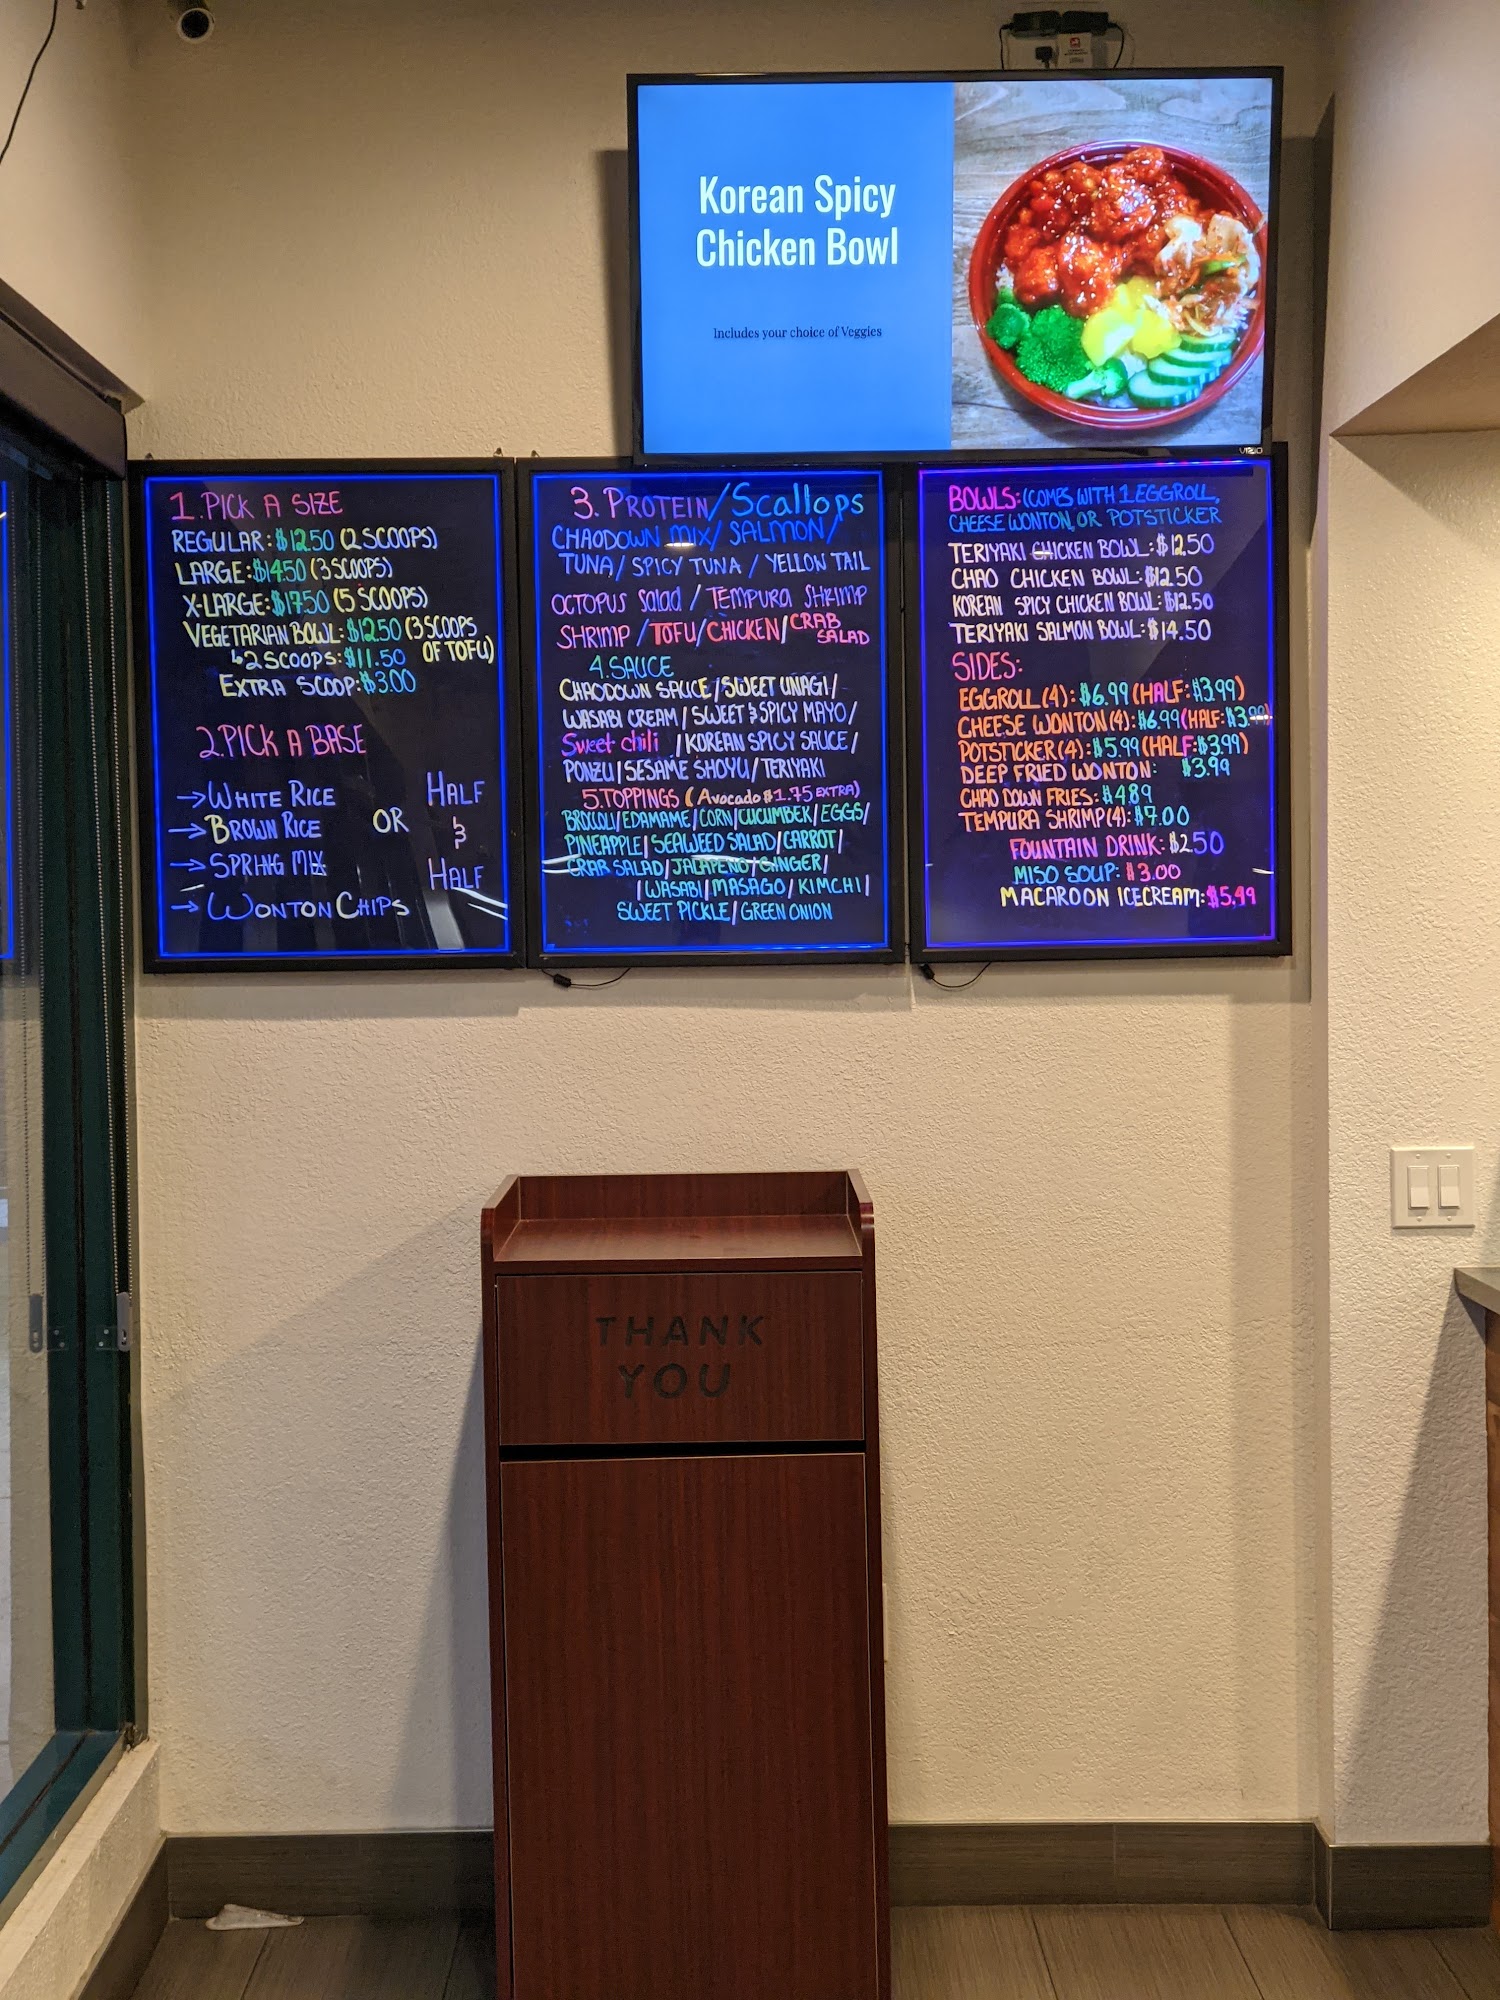 Korean Spicy
Chicken Bowl
Includes your choice of Veggies
VIZIO
1. PICK A SIZE
REGULAR: $12.50 (2 SCOOPS)
LARGE: $14.50 (3 SCOOPS)
X-LARGE: $17.50 (5 SCOOPS)
VEGETARIAN BOWL: $12.50 (3 SCOOPS
OF TOFU)
↳ 2 SCOOPS: $11.50
EXTRA SCOOP: $3.00
2. PICK A BASE
→ WHITE RICE
→ BROWN RICE
→ SPRING MIX
→ WONTON CHIPS
OR
HALF
&
HALF
3. PROTEIN/Scallops
CHAODOWN MIX/ SALMON/
TUNA/ SPICY TUNA / YELLOW TAIL
OCTOPUS Salad / TEMPURA SHRIMP
SHRIMP / TOFU/ CHICKEN/ CRAB
SALAD
4. SAUCE
CHAODOWN SAUCE / SWEET UNAGI /
WASABI CREAM / SWEET & SPICY MAYO /
Sweet chili / KOREAN SPICY SAUCE /
PONZU | SESAME SHOYU / TERIYAKI
5. TOPPINGS ( Avocado $1.75 EXTRA)
BROCCOLI/EDAMAME/CORN/CUCUMBER/EGGS/
PINEAPPLE | SEAWEED SALAD/CARROT/
CRAB SALAD/JALAPENO/GINGER/
| WASABI | MASAGO / KIMCHI |
SWEET PICKLE | GREEN ONION
BOWLS: (COMES WITH 1 EGGROLL,
CHEESE WONTON, OR POTSTICKER
TERIYAKI CHICKEN BOWL: $12.50
CHAO CHICKEN BOWL: $12.50
KOREAN SPICY CHICKEN BOWL: $12.50
TERIYAKI SALMON BOWL: $14.50
SIDES:
EGGROLL (4): $6.99 (HALF: $3.99)
CHEESE WONTON (4): $6.99 (HALF: $3.99)
POTSTICKER (4): $5.99 (HALF: $3.99)
DEEP FRIED WONTON: $3.99
CHAO DOWN FRIES: $4.89
TEMPURA SHRIMP (4): $7.00
FOUNTAIN DRINK: $2.50
MISO SOUP: $3.00
MACAROON ICECREAM: $5.49
THANK
YOU